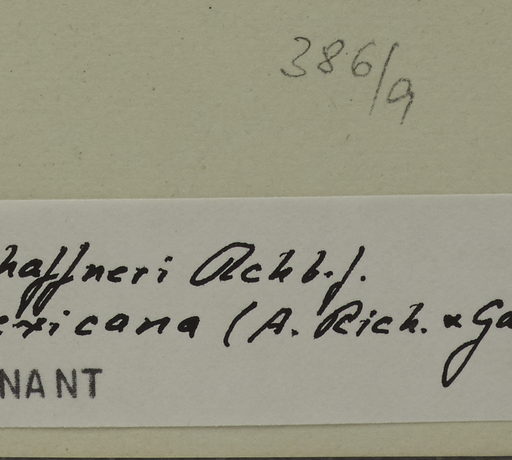 386/9
haffneri Rchb.f.
exicana (A. Rich. & Ga
NANT